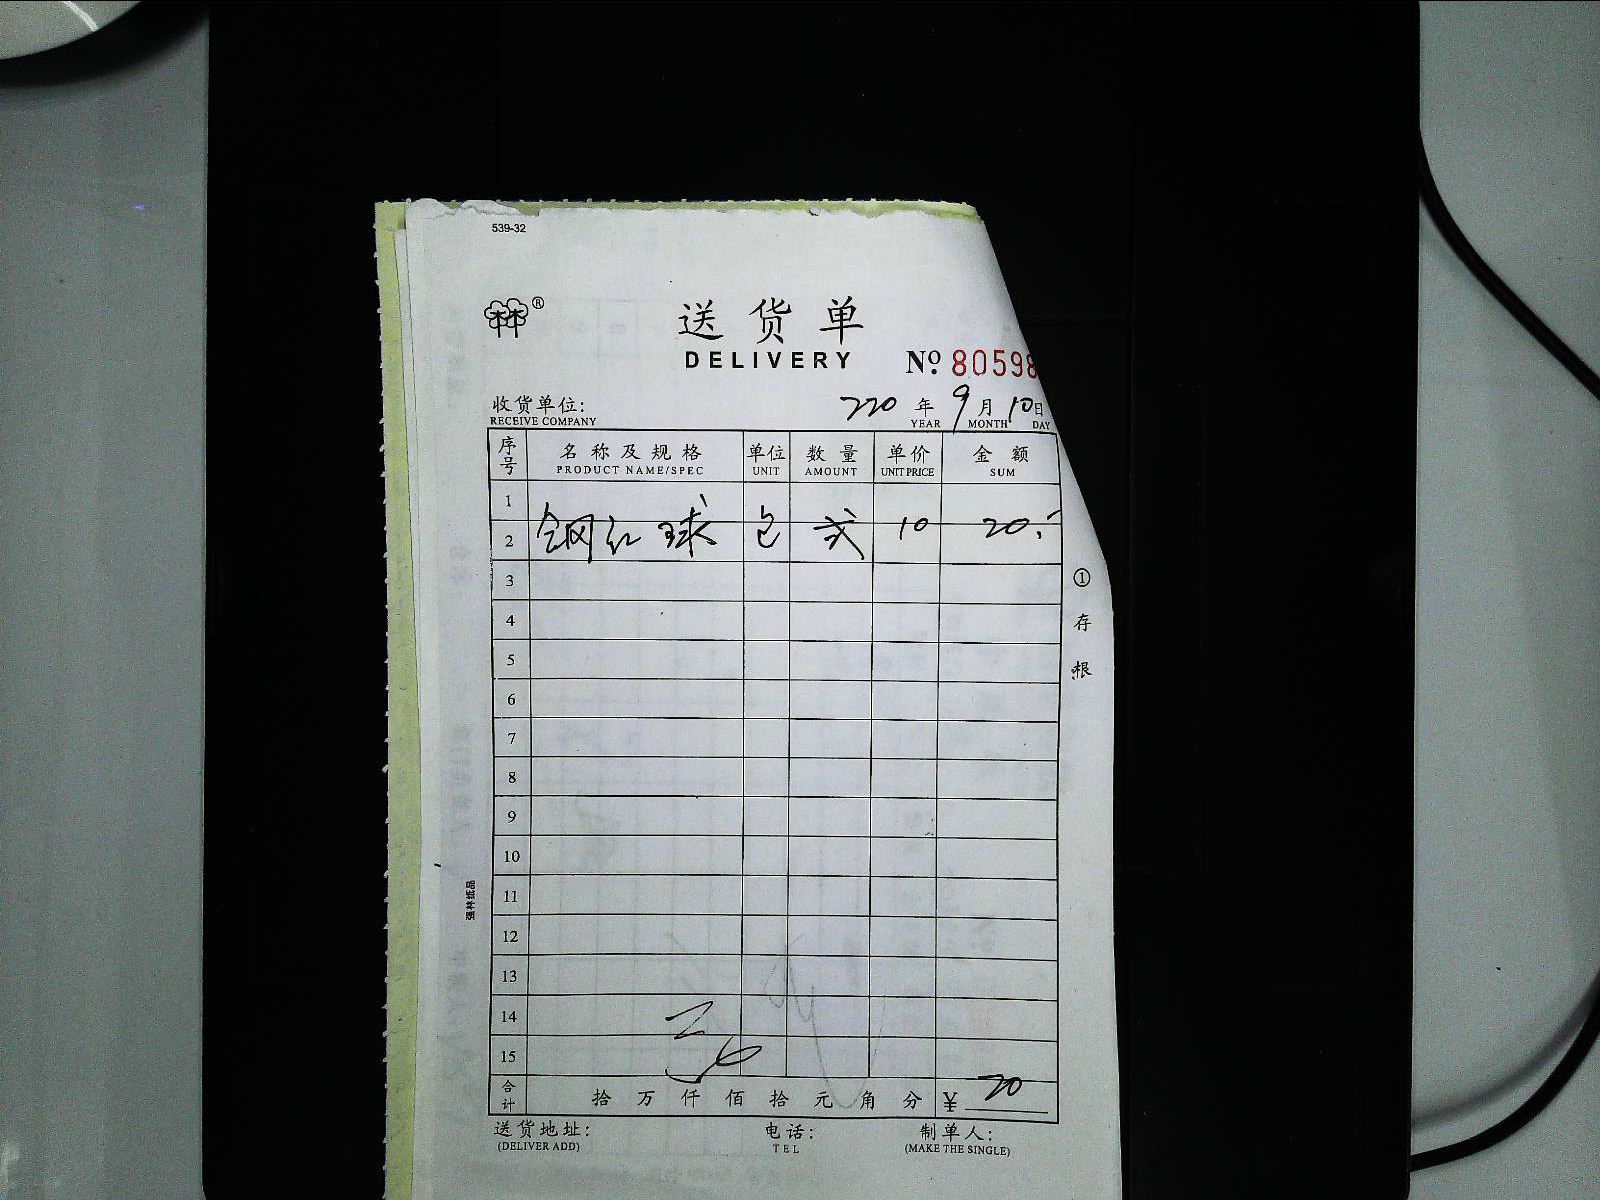 539-32
林®
送货单
DELIVERY
№ 80598
收货单位:
RECEIVE COMPANY
220 年 9 月 10 日
YEAR MONTH DAY
序号 名称及规格 单位 数量 单价 金额
PRODUCT NAME/SPEC UNIT AMOUNT UNIT PRICE SUM
1
2 钢红球 包 弍 10 20.-
3
4
5
6
7
8
9
10
11
12
13
14
15
合计 拾 万 仟 佰 拾 元 角 分 ¥ 20
送货地址: 电话: 制单人:
(DELIVER ADD) TEL (MAKE THE SINGLE)
① 存根
强林纸品